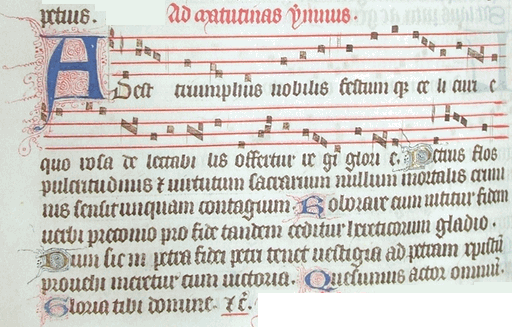 Ad matutinas ymnus.
Adest triumphus nobilis festum q3 ce li curi e
quo rosa de lectabi lis offertur re gi glori e. Petrus flos
pulcritudinis ⁊ uirtutum sacrarium nullum mortalis crimi
nis sensit unquam contagium. Roborare cum nititur fidem
uerbi preconio pro fide tandem ceditur hereticorum gladio.
Dum sic in petra fidei petri tenet uestigia ad petram xpisti
prouehi meretur cum uictoria. Quesumus actor omniū.
Gloria tibi domine. ⁊ c̄.